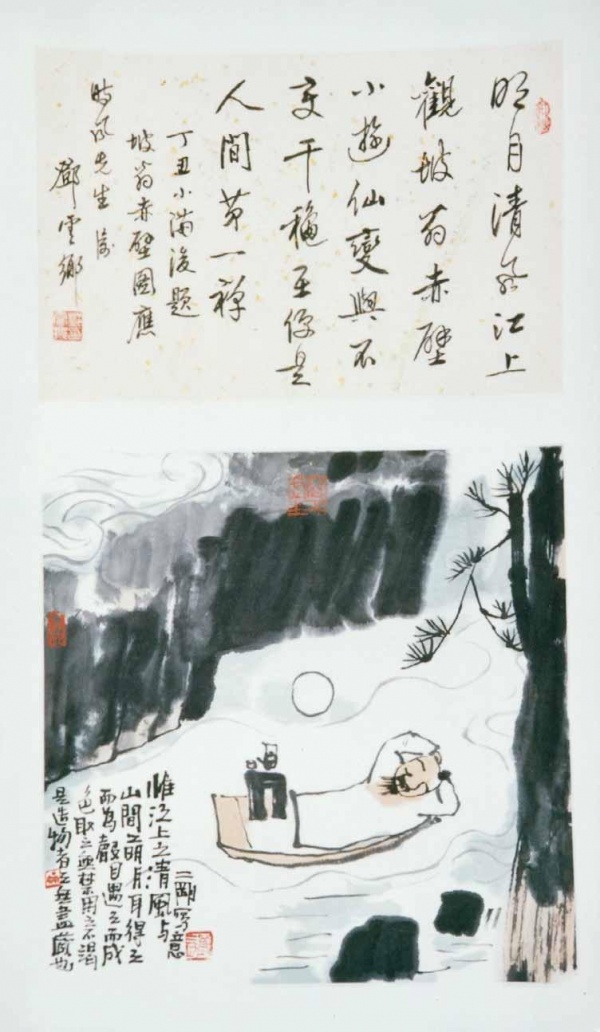 明月清風江上
觀坡翁赤壁
小遊仙變與不
变千穐是
人間第一禅
丁丑小滿後題
坡翁赤壁圖應
時風先生
鄧雲鄉
惟江上之清風与
山間之明月耳得之
而為聲目遇之而成
色取之無禁用之不竭
是造物者之無盡藏也
二剛寫意